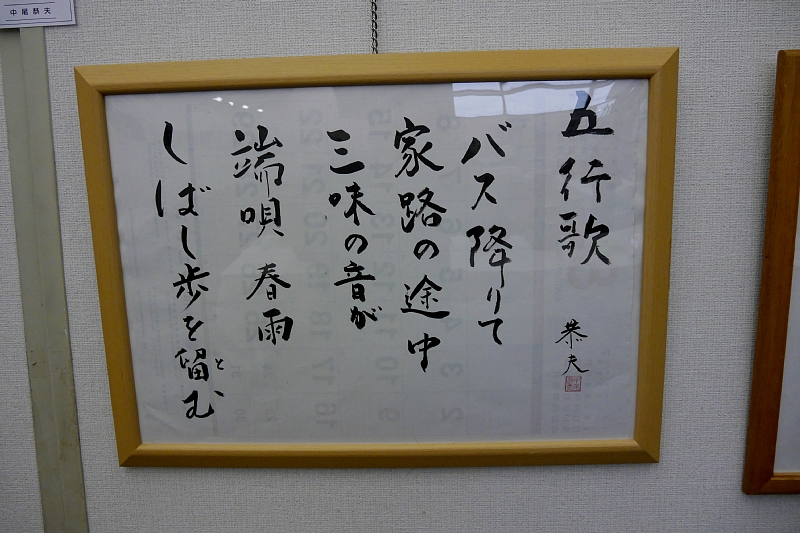 中尾恭夫
五行歌
恭夫
バス降りて
家路の途中
三味の音が
端唄 春雨
しばし歩を留む
と